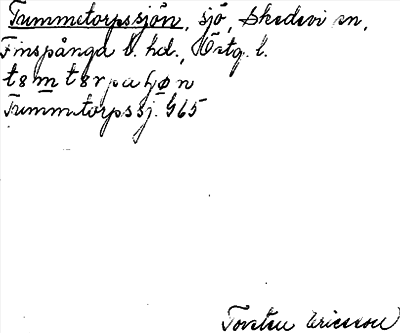 Tummetorpssjön, sjö, Skedevi sn,
Finspånga l. hd., Östg. l.
Tummetorpssj. G65
Torsten Ericsson